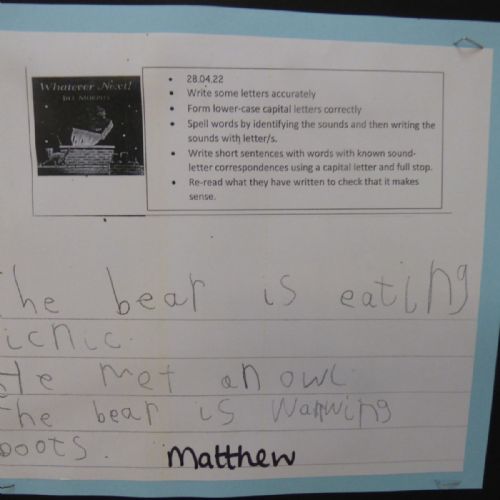 Whatever Next!
JILL MURPHY
28.04.22
Write some letters accurately
Form lower-case capital letters correctly
Spell words by identifying the sounds and then writing the
sounds with letter/s.
Write short sentences with words with known sound-
letter correspondences using a capital letter and full stop.
Re-read what they have written to check that it makes
sense.
the bear is eating
icnic.
He met an owl.
the bear is warwing
boots.
Matthew